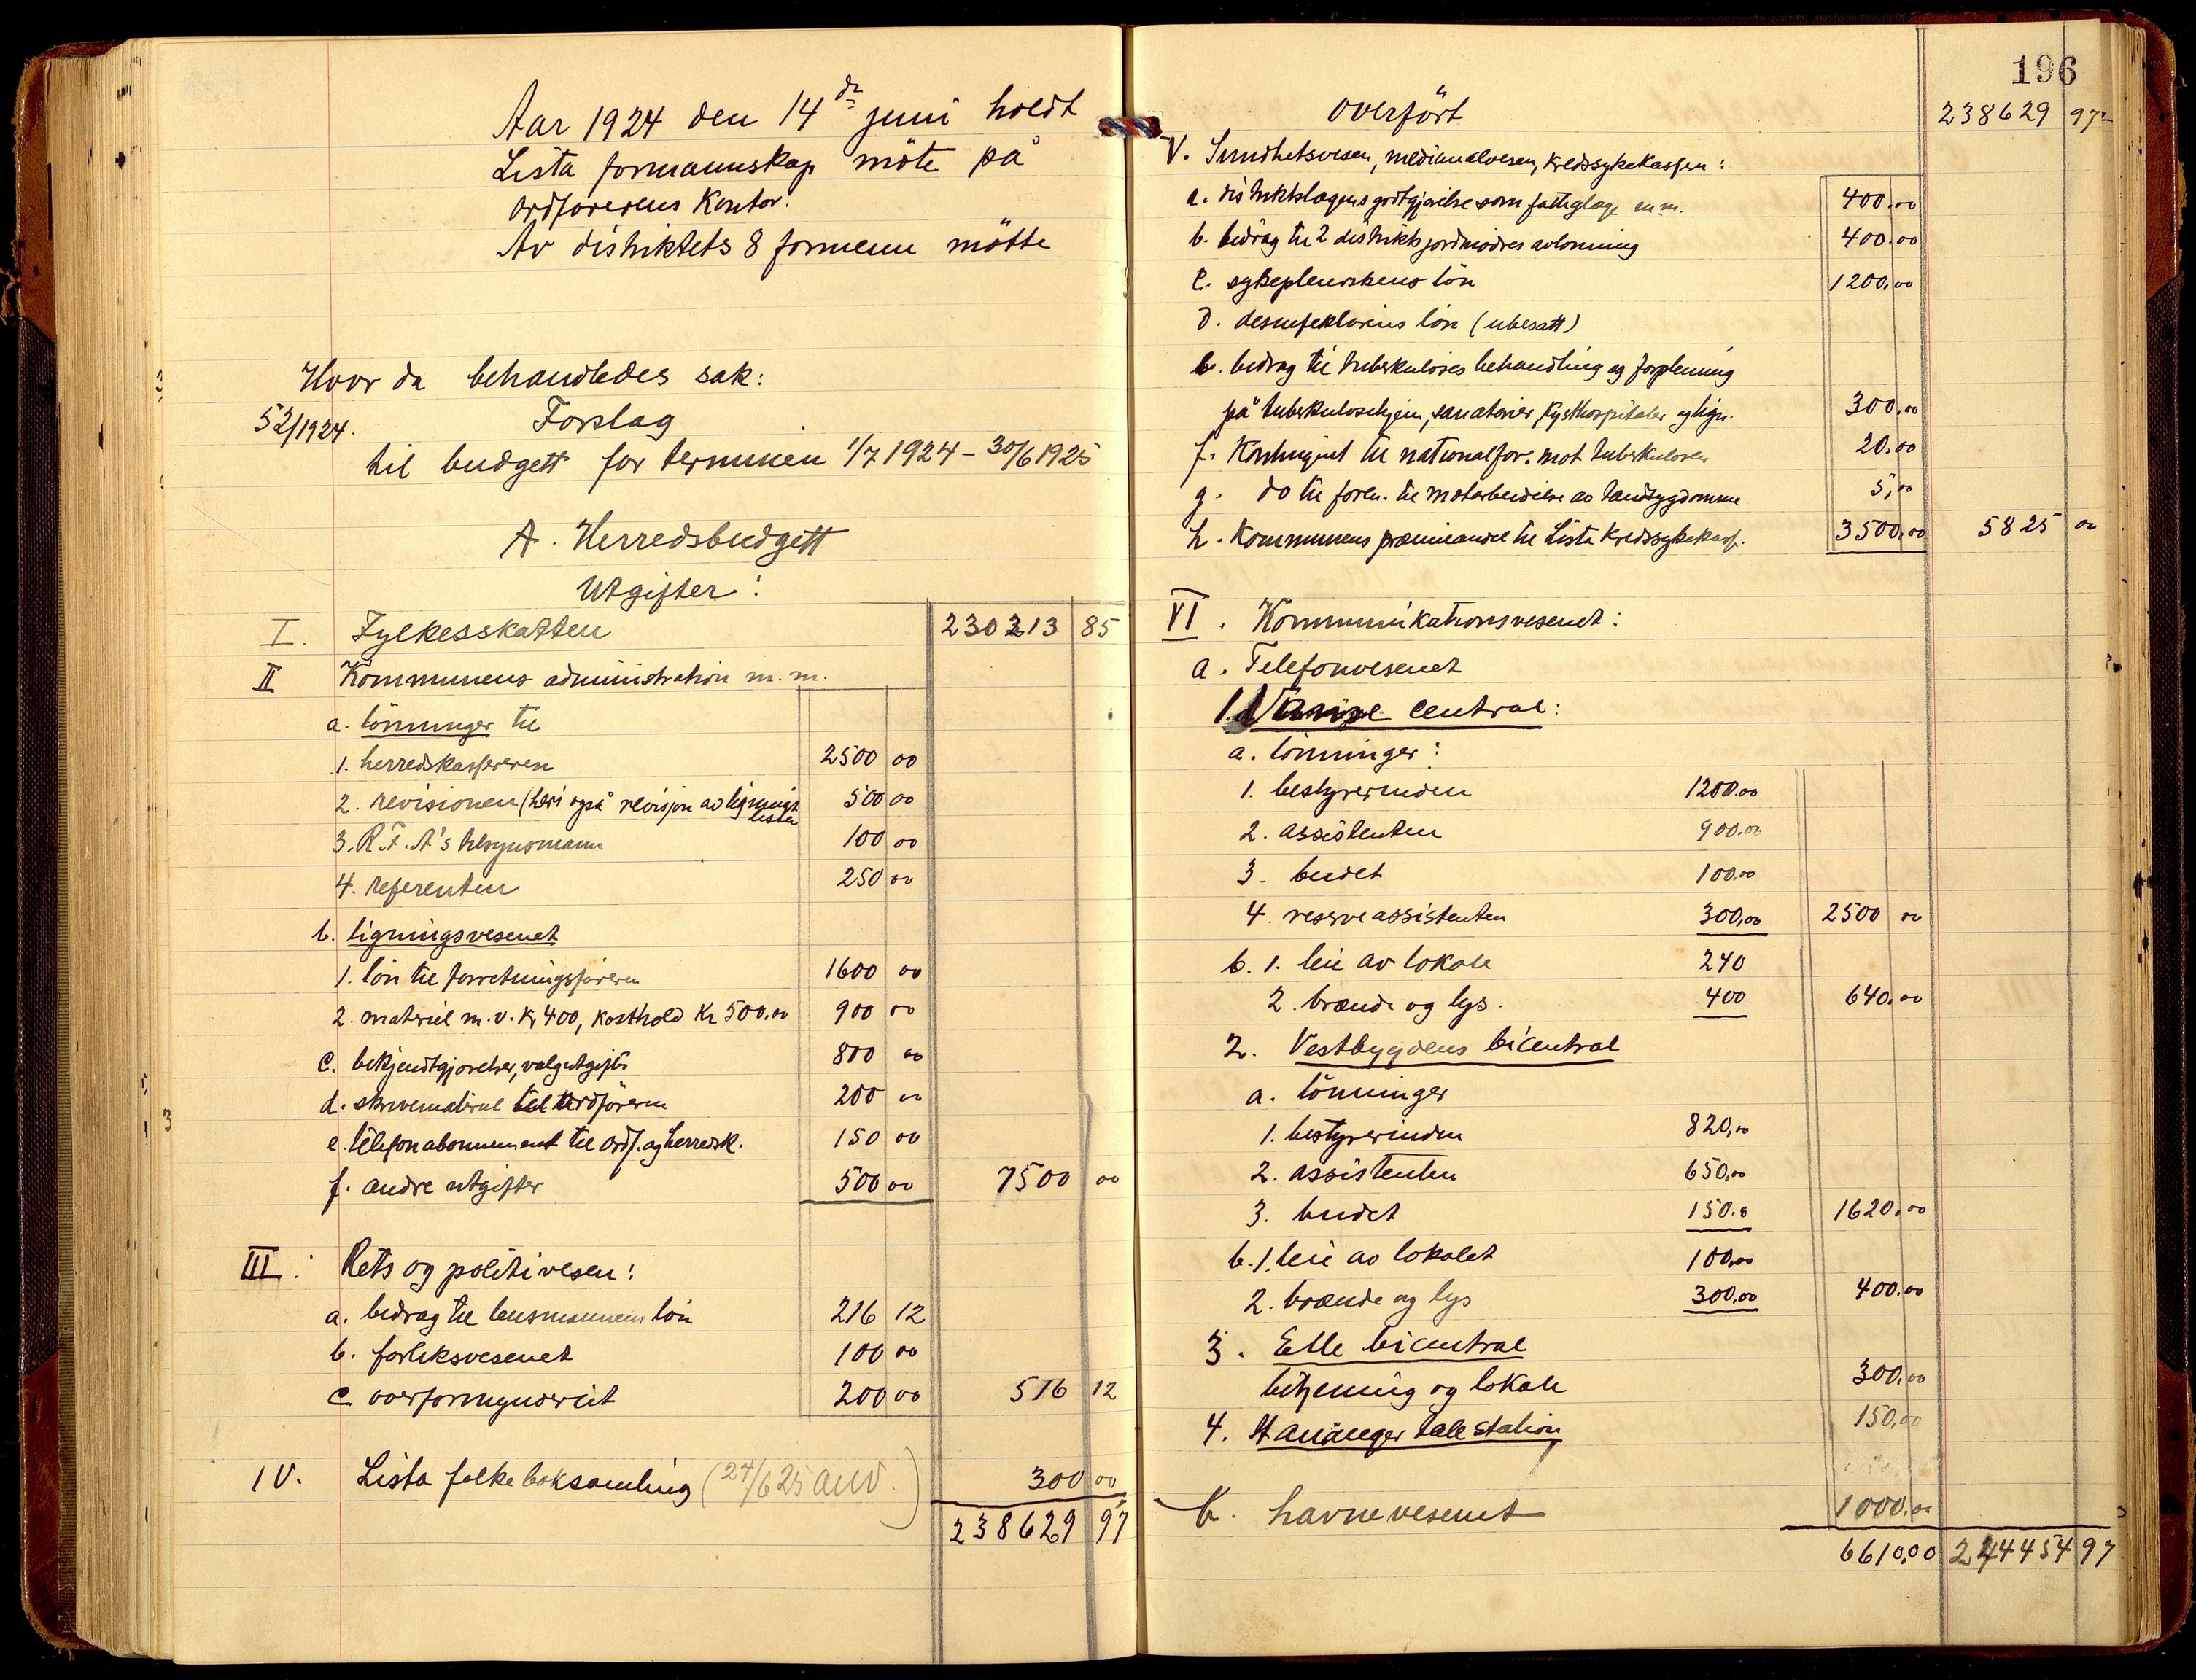 Aar 1924 den 14de juni holdt
Lista formannskap möte på
ordförerens kontor.
Av distriktets 8 formenn mötte
Hvor da behandledes sak:
52/1924. Forslag
til budgett for terminen 1/7 1924 - 30/6 1925
A. Herredsbudgett
Utgifter:
I. Fylkesskatten 230213 85
II Kommunens administration m. m.
a. lönninger til
1. herredskassereren 2500 00
2. revisionen (heri også revisjon av ligningslister 500 00
3. R.F.A's tilsynsmann 100 00
4. referenten 250 00
b. ligningsvesenet
1. lön til forretningsföreren 1600 00
2. materiel m.v. kr 400, kosthold kr 500,00 900 00
c. bekjendtgjörelser, valgutgifter 800 00
d. skrivematerial til ordföreren 200 00
e. telefonabonnement til ordf. og herredsk. 150 00
f. andre utgifter 500 00 7500 00
III. Rets og politivesen:
a. bidrag til lensmannens lön 216 12
b. forliksvesenet 100 00
c overformynderiet 200 00 516 12
IV. Lista folkeboksamling (24/6 25 anv.) 300 00
238629 97
196
overfört 238629 97
V. Sundhetsvesen, medicinalvesen, kredssykekassen:
a. distriktslægens godtgjörelse som fattiglæge m.m. 400.00
b. bidrag til 2 distriktsjordmödres avlönning 400.00
c. sykepleierskens lön 1200,00
d. desinfektörens lön (ubesatt)
e. bidrag til tuberkulöses behandling og forpleining
på tuberkulosehjem, sanatorier, kysthospitaler og lign. 300,00
f. Kontingent til nationalfor. mot tuberkulosen 20.00
g. do til foren. til motarbeidelse av tandsygdomme 5,00
h. Kommunens præmieandel til Lista Kredssykekasse. 3500,00 5825 00
VI. Kommunikationsvesenet:
a. Telefonvesenet
1. Vanse central:
a. lönninger:
1. bestyrerinden 1200.00
2. assistenten 900.00
3. budet 100.00
4. reserveassistenten 300,00 2500 00
b. 1. leie av lokale 240
2. brænde og lys. 400 640.00
2. Vestbygdens bicentral
a. lönninger
1. bestyrerinden 820,00
2. assistenten 650,00
3. budet 150.0 1620,00
b. 1. leie av lokalet 100,00
2. brænde og lys 300,00 400.00
3. Elle bicentral
betjening og lokale 300,00
4. Stavanger talestation 150,00
b. havnevesenet 1000,00
6610,00 244454 97